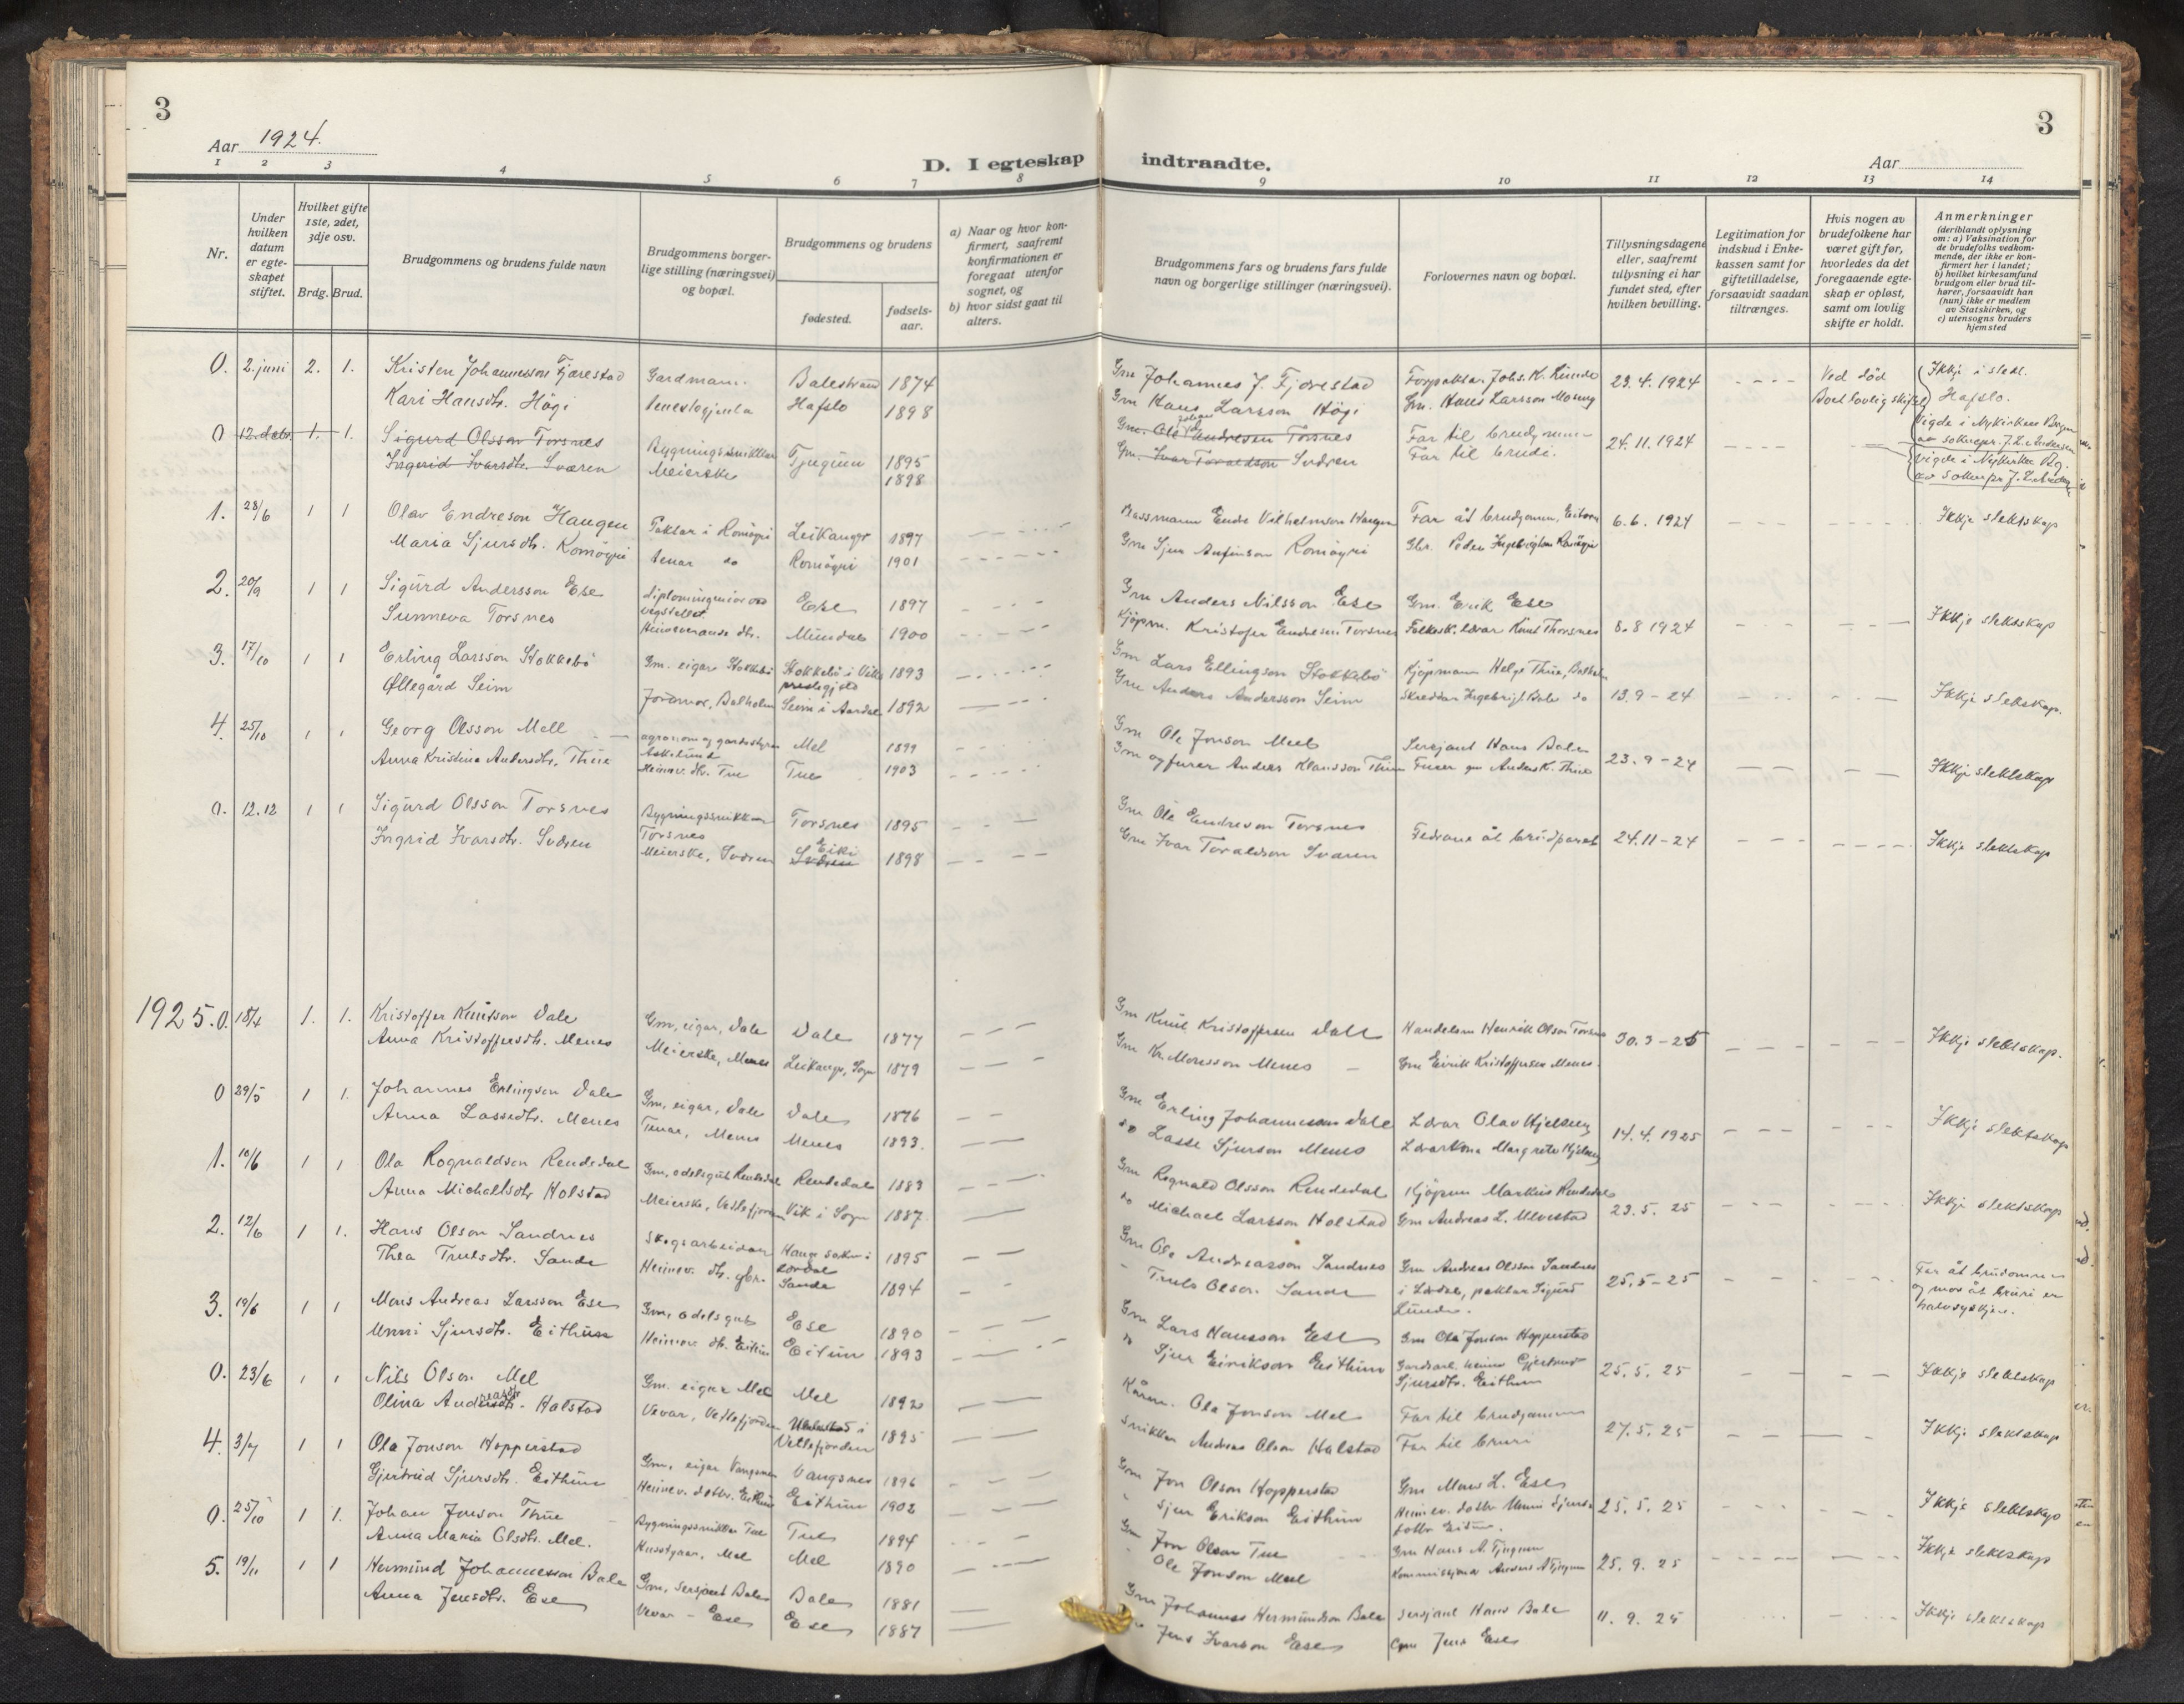 3
Aar 1924.
D. I egteskap indtraadte.
3
Aar
1 2 3 4 5 6 7 8 9 10 11 12 13 14
Nr.
Under hvilken datum er egte-skapet stiftet.
Hvilket gifte 1ste, 2det, 3dje osv.
Brdg. Brud.
Brudgommens og brudens fulde navn
Brudgommens borger-lige stilling (næringsvei) og bopæl.
Brudgommens og brudens
fødested.
fødsels-aar.
a) Naar og hvor kon-firmert, saafremt konfirmationen er foregaat utenfor sognet, og
b) hvor sidst gaat til alters.
Brudgommens fars og brudens fars fulde navn og borgerlige stillinger (næringsvei).
Forlovernes navn og bopæl.
Tillysningsdagene eller, saafremt tillysning ei har fundet sted, efter hvilken bevilling.
Legitimation for indskud i Enke-kassen samt for giftetilladelse, forsaavidt saadan tiltrænges.
Hvis nogen av brudefolkene har været gift før, hvorledes da det foregaaende egte-skap er opløst, samt om lovlig skifte er holdt.
Anmerkninger (deriblandt oplysning om: a) Vaksination for de brudefolks vedkom-mende, der ikke er kon-firmert her i landet; b) hvilket kirkesamfund brudgom eller brud til-hører, forsaavidt han (hun) ikke er medlem av Statskirken, og c) utensogns bruders hjemsted
0. 2. juni 2. 1. Kristen Johannesson Fjærestad Gardmann. Balestrand 1874 Gm Johannes J. Fjørestad Forpaktar Johs. K. Lunde 23.4.1924 Ved død Ikkje i slekt.
Kari Hansdtr. Högi Hafslo 1898 Gm Hans Larsson Högi Gm. Hans Larsson Hafslo.
0 12. des. 1. 1. Sigurd Olsson Torsnes Bygningssnikkar Tjugum 1895 Gm. Ole Endresen Torsnes Far til brudgomm 24.11.1924 Vigde i Nykirken Bergen
Ingrid Ivarsdtr. Sværen Meierske 1898 Gm. Ivar Toraldson Sværen Far til brudi. Vigde i Nykirken Bg.
1. 28/6 1 1 Olav Endreson Haugen Paktar i Romögri Leikanger 1897 Bassmann Endre Vilhelmson Haugen Far åt brudgomm, 6.6.1924 Ikkje slektskap
Maria Sjursdtr. Romögri tenar do Romögri 1901 Gm Sjur Anfinson Romögri Gbr. Peder Ingebrigtson Romögri
2. 20/9 1 1 Sigurd Andersson Ese diplomingeniør vegstellet Ese 1897 Gm Anders Nilsson Ese Gm. Erik Ese 8.8 1924 Ikkje slektskap
Sunneva Torsnes Heimeverande dtr. Mundal 1900 Kjöpm. Kristofer Endresen Torsnes Folkesk. lærar Knut Thorsnes
3. 17/10 1 1 Erling Larsson Stokkebö Gm. eigar Stokkebö Stokkebö i Vik prestegjeld 1893 Gm Lars Ellingson Stokkebö Kjöpmann Helge Thue, Balholm 13.9-24 Ikkje slektskap.
Øllegård Seim Jordmor, Balholm Seim i Aardal 1892 Gm Anders Andersson Seim Skreddar Ingebrigt Bale do
4. 25/10 1 1 Georg Olsson Mell agronom og gardsstyrar Askelund Mel 1899 Gm Ole Jonson Meel Sersjant Hans Bale 23.9-24 Ikkje slektskap
Anna Kristina Andersdtr. Thue Heimev. dtr. Tue Tue 1903 Gm og furer Anders Klausson Thue Furer gm Anders K. Thue
0. 12.12 1 1 Sigurd Olsson Torsnes Bygningssnikkar Torsnes Torsnes 1895 Gm Ole Endreson Torsnes Fedrane åt brudparet 24.11-24 Ikkje slektskap
Ingrid Ivarsdtr. Sværen Meierske, Sværen Eiki Sværen 1898 Gm Ivar Toraldson Sværen
1925. 0. 18/4 1. 1. Kristoffer Knutsson Dale Gm, eigar, Dale Dale 1877 Gm Knut Kristoffersen Dale Handelsm Henrik Olson Torsnes 30.3-25 Ikkje slektskap.
Anna Kristoffersdtr. Menes Meierske, Menes Leikanger, Sogn 1879 Gm Kr. Monsson Menes Gm Eirik Kristoffersen Menes.
0 29/5 1 1. Johannes Erlingson Dale Gm, eigar, Dale Dale 1876 Gm Erling Johannesson Dale Lærar Olav Hjelseng 14.4.1925 Ikkje slektskap
Anna Lassedtr. Menes Tenar, Menes Menes 1893. do Lasse Sjurson Menes Lærarkona Margrete Hjelseng
1. 10/6 1 1 Ola Rognaldson Rendedal Gm, odelsgut Rendedal Rendedal 1883 Gm Rognald Olsson Rendedal Kjöpm Markus Rendedal 23.5.25 Ikkje slektskap
Anna Michalsdtr Holstad Meierske, Vetlefjorden Vik i Sogn 1887. do Michael Larsson Holstad Gm Andreas L. Ulvestad
2. 12/6 1 1. Hans Olson Sandnes Skogsarbeidar Hauge sokn i Lærdal 1895 Gm Ole Andreasson Sandnes Gm Andreas Olsson Sandnes 25.5-25 Far åt brudgommen
Thea Trulsdtr. Sande Heimev. dtr. gbr. Sande 1894 Truls Olson Sande i Lærdal, paktar Sigurd Lunde. og mor åt bruri er halvsyskjen.
3. 19/6 1 1 Mons Andreas Larsson Ese Gm, odelsgut Ese 1890 Gm Lars Hansson Ese Gm Ola Jonson Hopperstad 25.5.25 Ikkje slektskap
Unni Sjursdtr. Eithun Heimev. dtr. Eithun Eitun 1893 do Sjur Eirikson Eithun Gardsarb. heime Gjertrud Sjursdtr. Eithun
0. 23/6 1 1 Nils Olson Mel Gm. eigar Mel Mel 1892 Kårm. Ola Jonson Mel Far til brudgomm 27.5.25 Ikkje slektskap
Olina Andreasdtr. Halstad Vevar, Vetlefjorden Ulvestad i Vetlefjorden 1895 Snikkar Andreas Olson Halstad Far til bruri
4. 3/7 1 1 Ola Jonson Hopperstad Gm, eigar Vangsnes Vangsnes 1896 Gm Jon Olson Hopperstad Gm Mons L. Ese 25.5.25 Ikkje slektskap
Gjertrud Sjursdtr. Eithun Heimev. dottr. Eithun Eithun 1902 Sjur Erikson Eithun Heimev. dottr Unni Sjursdottr Eitun.
0. 25/10 1 1. Johan Jonson Thue Bygningssnikkar Tue Tue 1894 Gm Jon Olson Tue Gm Hans A. Tjugum 25.9.25 Ikkje slektskap
Anna Maria Olsdtr. Mel. Husstyrar, Mel Mel 1890 Ole Jonson Mel Anders A Tjugum
5. 19/11 1 1 Hermund Johannesson Bale Gm, Sersjant Bale Bale 1881 Gm Johannes Hermundson Bale Sersjant Hans Bale 11.9.25 Ikkje slektskap
Anna Jensdtr. Ese Vevar - Ese Ese 1887 Jens Ivarson Ese Gm Jens Ese